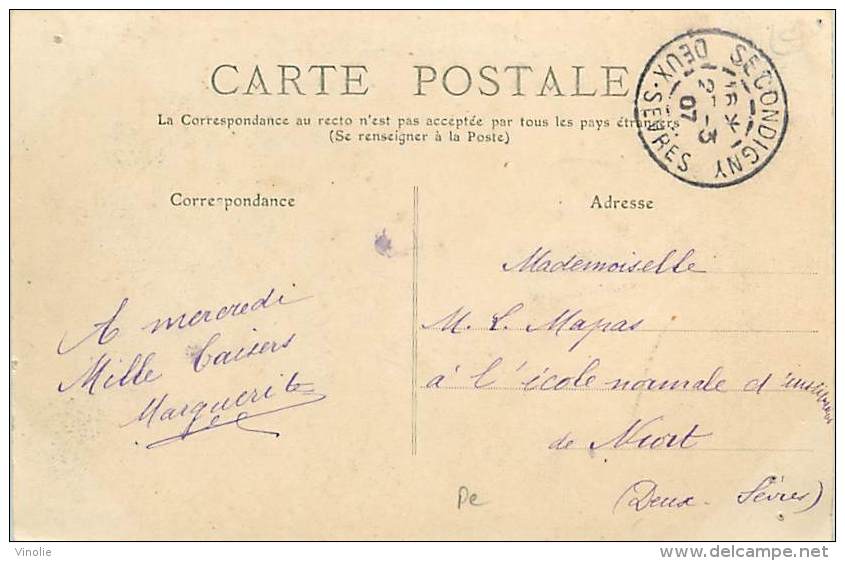 CARTE POSTALE
La Correspondance au recto n'est pas acceptée par tous les pays étrangers
(Se renseigner à la Poste)
SECONDIGNY
DEUX-SÈVRES
07
Correspondance
Adresse
A mercredi
Mille baisers
Marguerite
Mademoiselle
M. L. Mapas
à l'école normale d'
de Niort
(Deux-Sèvres)
Pc
Vinolie
www.delcampe.net